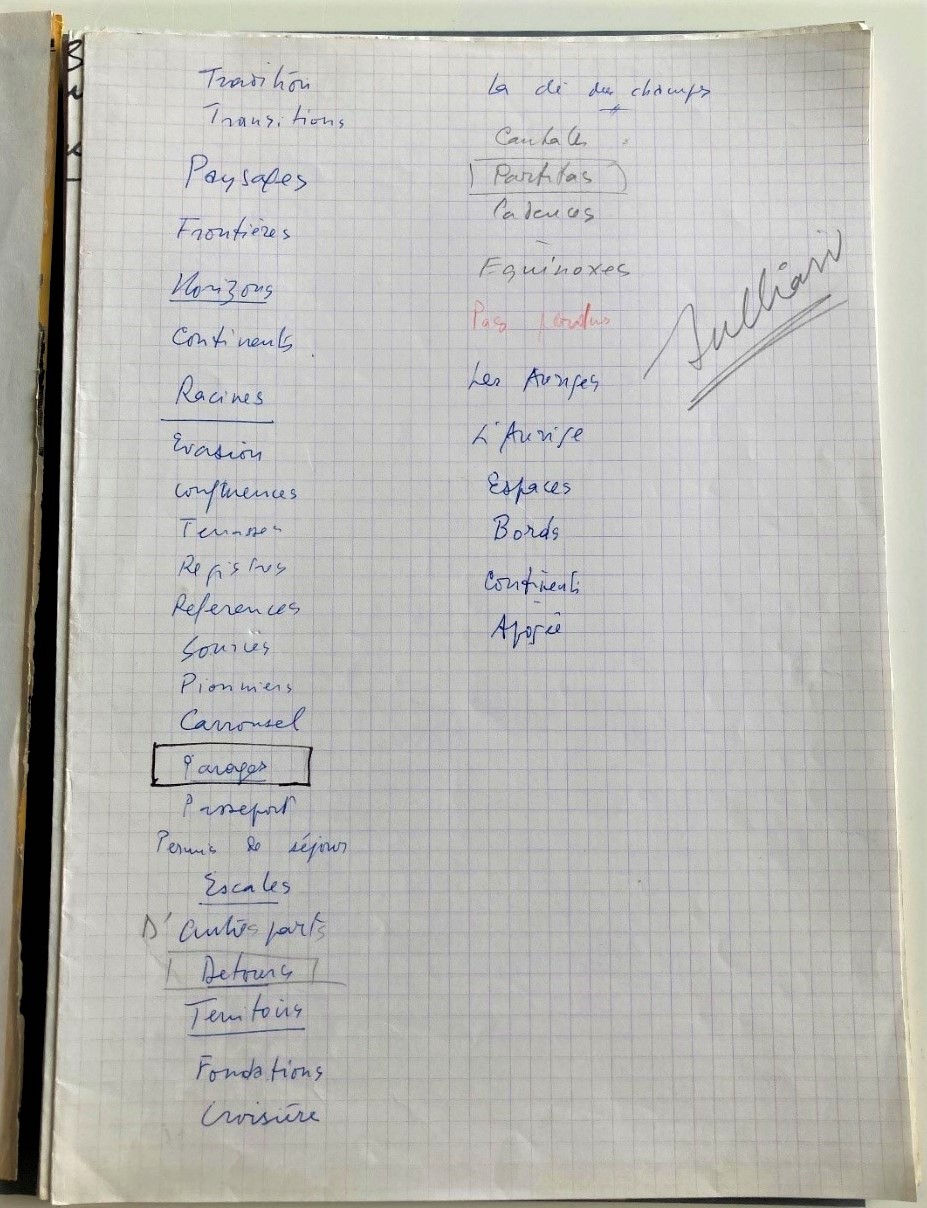 Tradition
Transitions
Paysages
Frontières
Horizons
Continents
Racines
Evasion
Confluences
Terrasses
Registres
References
Sources
Pionniers
Carrousel
Parages
Passeport
Permis de séjour
Escales
D'autres parts
Detours
Territoires
Fondations
Croisière
La clé des champs
Cantates
Partitas
Cadences
Equinoxes
Pas perdus
Les Auriges
L'Aurige
Espaces
Bords
Continents
Apogée
Julliard